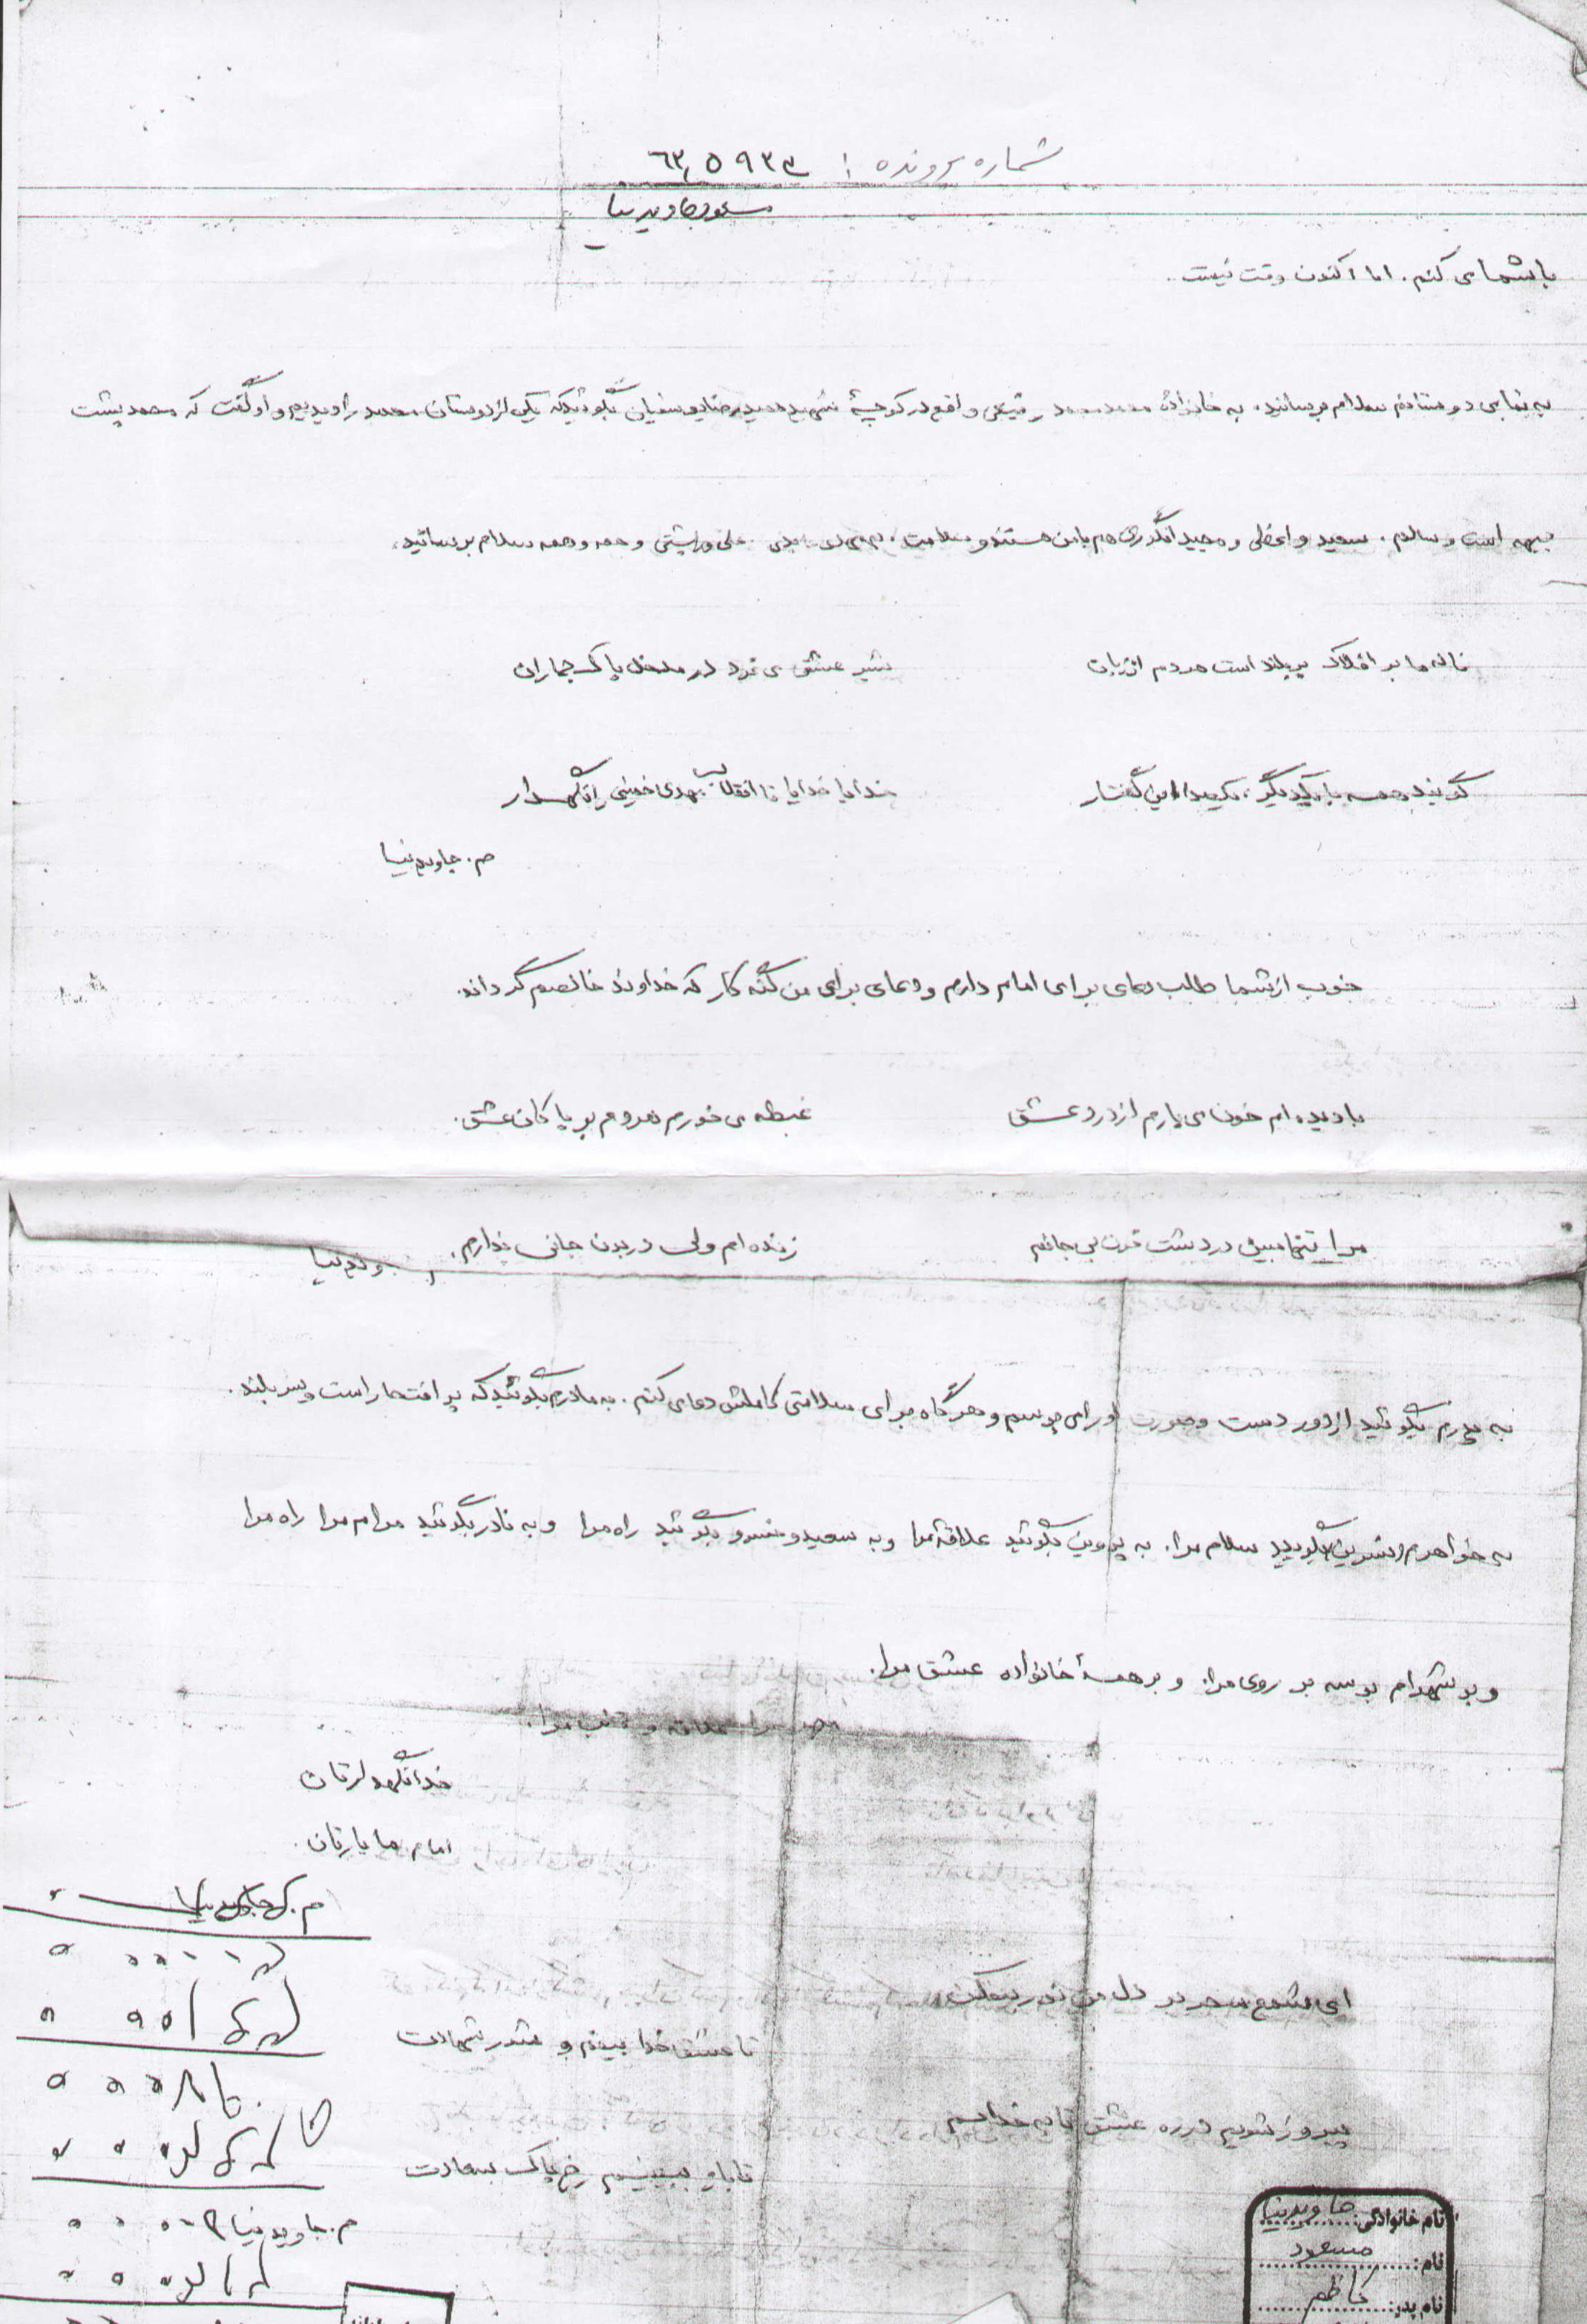 شماره پرونده: ۶۳٫۵۹۳۳
مسعود جاویدنیا
با شما می کنم. اما اکنون وقت نیست.
به تمامی دوستانم سلام برسانید. به خانواده محمد رفیعی واقع در کوچه شهید حمیدرضا یوسفیان بگوئید که یکی از دوستان محمد را دیدیم و او گفت که محمد پشت
جبهه است و سالم. سعید واعظی و مجید انگوری هم با من هستند و سلامت. علی و همه و همه سلام برسانید.
ناله ما بر افلاک بر بلند است هر دم از زبان
شیر عشق می غرد در محفل پاک جماران
گویند همه با یکدیگر، یکصدا این گفتار
خدایا خدایا تا انقلاب مهدی خمینی را نگهدار
م. جاویدنیا
خوب از شما طلب دعای برای امام دارم و دعای برای من گنه کار که خداوند خالصم گرداند.
با دیده ام خون می بارم از درد عشق
غبطه می خورم هر دم بر پاکان عشق.
مرا تنها مبین در دشت خون بی جانم
زنده ام ولی در بدن جانی ندارم.
به پدرم بگوئید از دور دست و صورت او را می بوسم و هر گاه برای سلامتی کاملش دعا می کنم. به مادرم بگوئید که پر افتخار است و سربلند.
به خواهرم نسرین بگویید سلام مرا. به پروین بگوئید علاقه مرا و به سعید و خسرو بگوئید راه مرا و به نادر بگوئید مرام مرا راه مرا
و بر شهرام بوسه بر روی مرا. و بر همه خانواده عشق مرا.
علاقه و مرا.
خدا نگهدارتان
امام ما یارتان.
م. جاویدنیا
ای شمع سحر بر دل من
تا عشق خدا بینم و شهادت
پیروز شویم در ره عشق تا به خدا
تا باو ببینیم رخ پاک سعادت
م. جاویدنیا
نام خانوادگی: جاویدنیا
نام: مسعود
نام پدر: کاظم